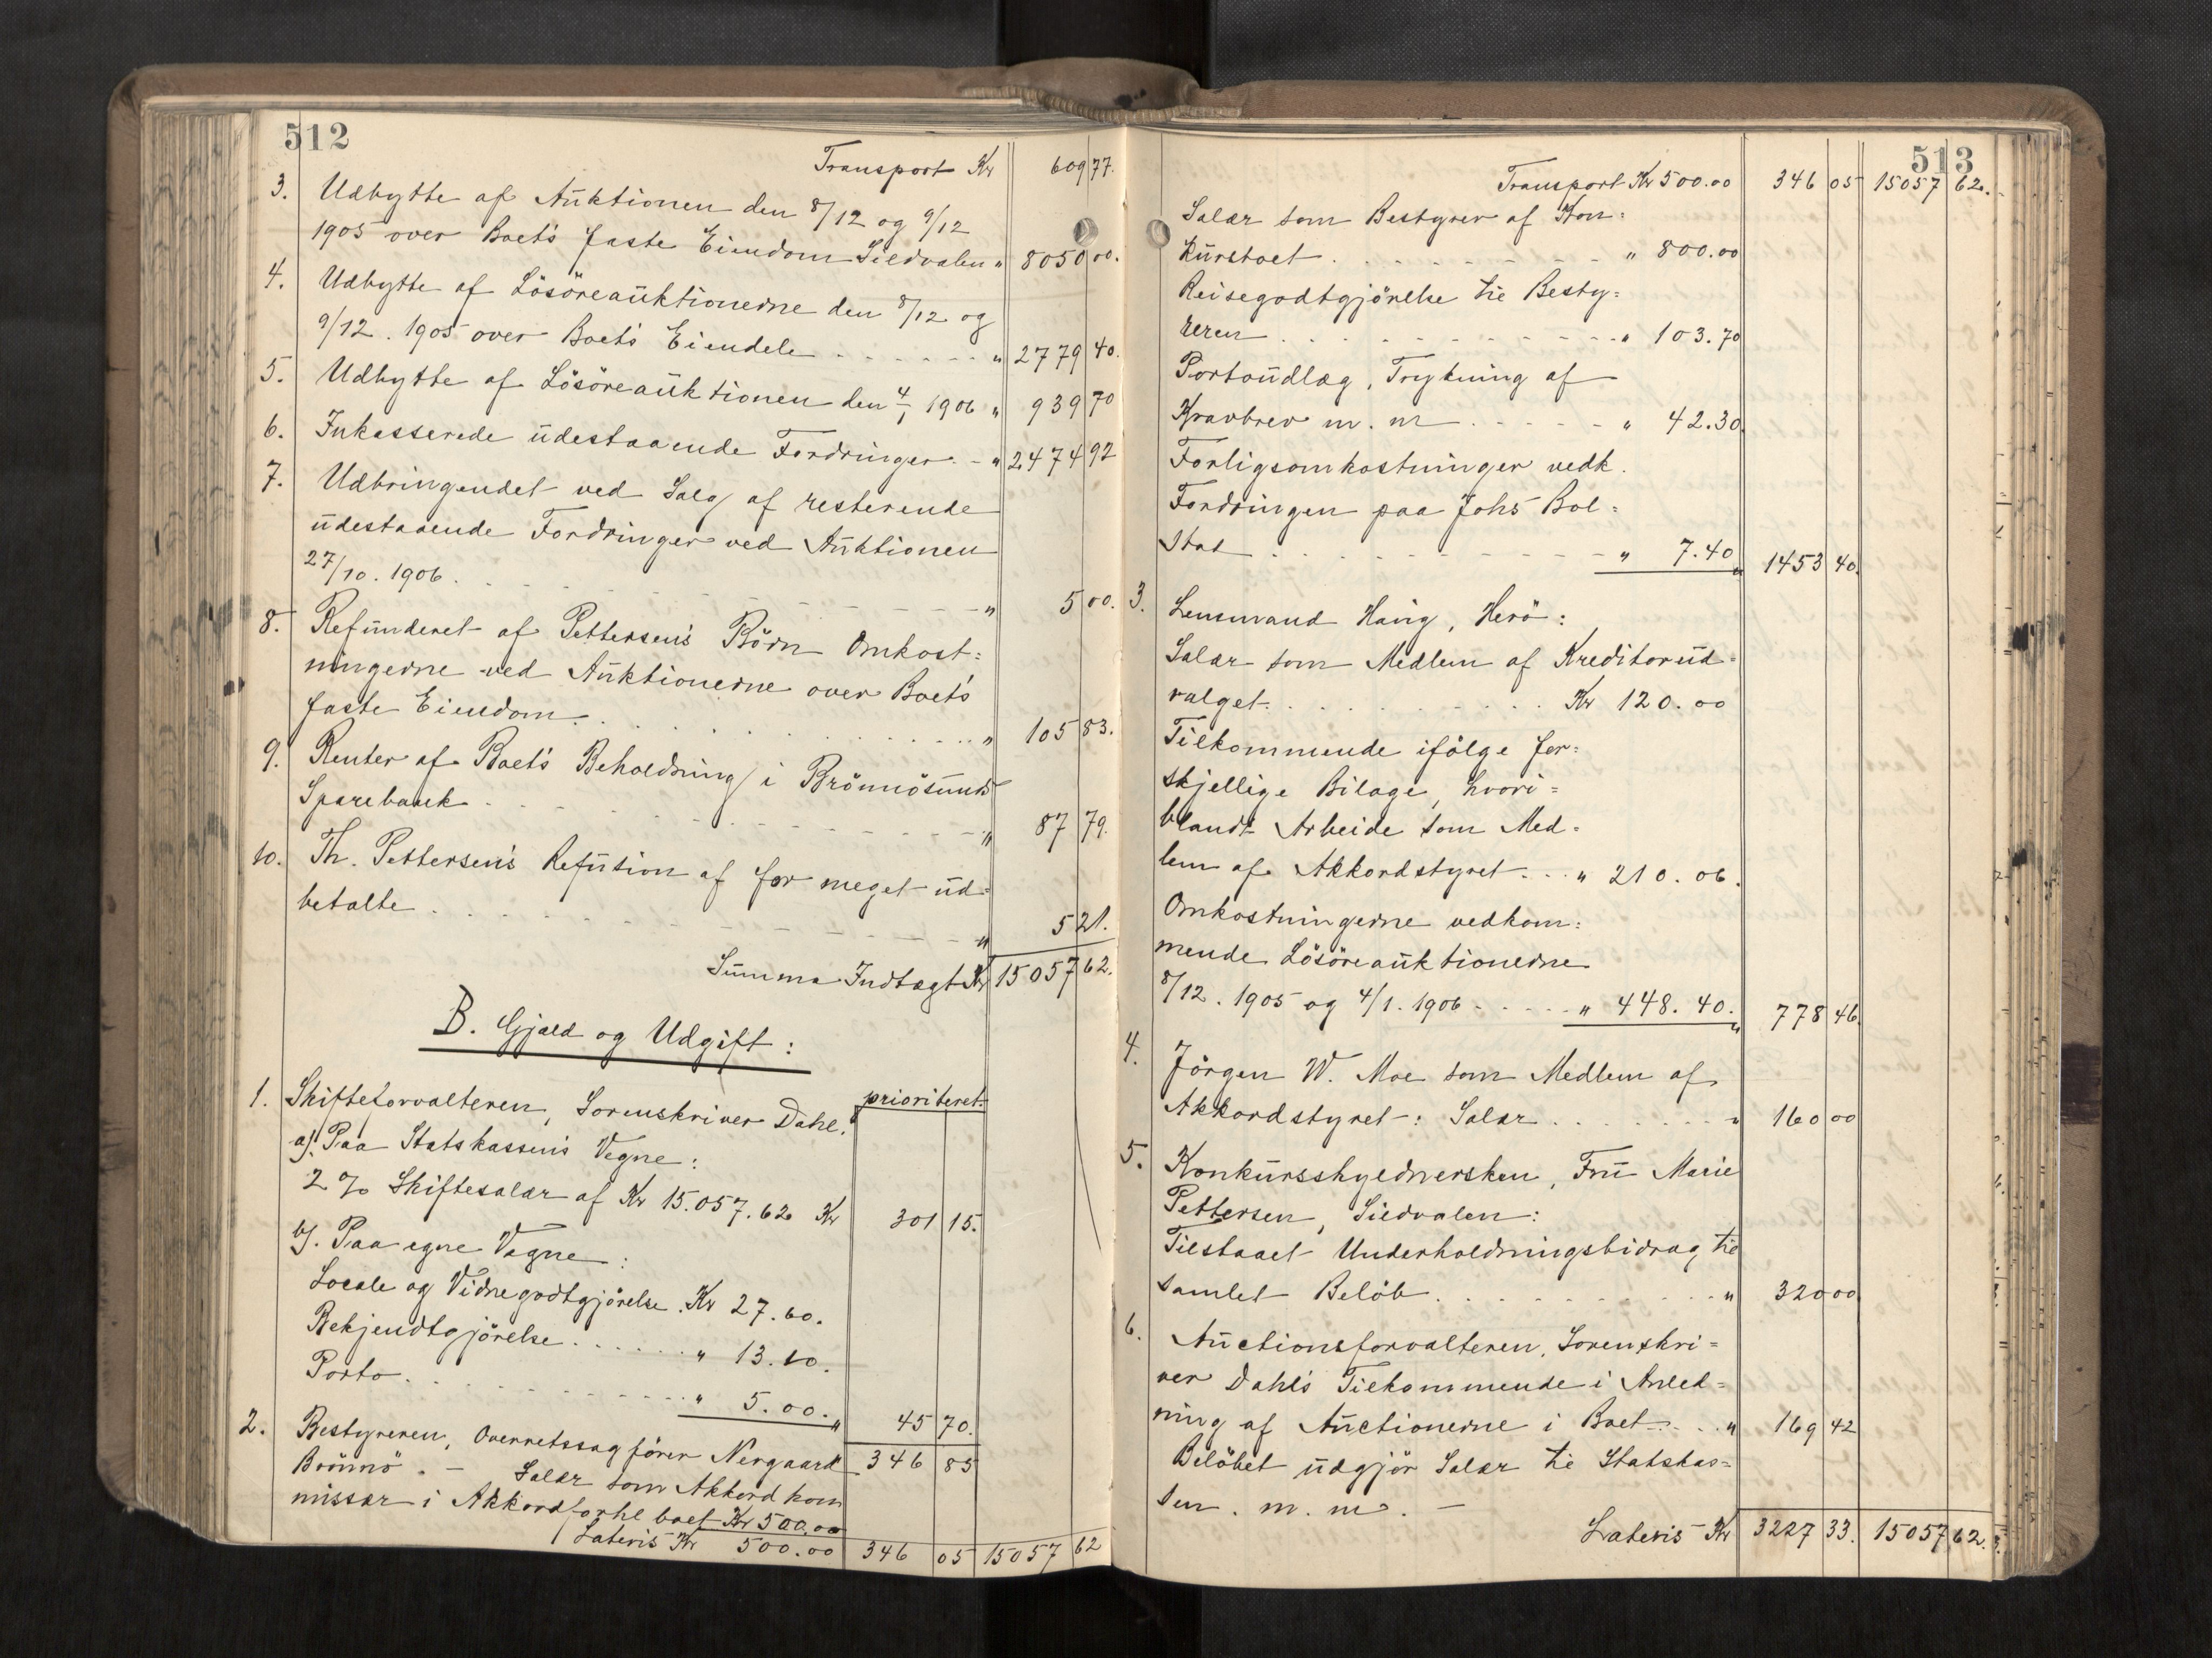 512
Transport Kr 609 77.
3. Udbytte af Auktionen den 8/12 og 9/12
1905 over Boets faste Eiendom Sildvalen " 8050 00.
4. Udbytte af Lösöreauktionerne den 8/12 og
9/12. 1905 over Boets Eiendele . . . . . . " 2779 40.
5. Udbytte af Lösöreauktionen den 4/1 1906 " 939 70
6. Inkasserede udestaaende Fordringer. - " 2474 92
7. Udbringendet ved Salg af resterende
udestaaende Fordringer ved Auktionen
27/10. 1906. . . . . " 5 00.
8. Refunderet af Pettersens Börn Omkost=
ningerne ved Auktionerne over Boets
faste Eiendom. . . . . " 105 83.
9. Renter af Boets Beholdning i Brönnösunds
Sparebank . . . . . " 87 79.
10. Th. Pettersens Refusion af for meget ud=
betalte . . . . . " 5 21.
Summa Indtægt Kr 15057 62.
B. Gjæld og Udgift :
prioriteret:
1. Skifteforvalteren, Sorenskriver Dahl.
a). Paa Statskassens Vegne :
2 % Skiftesalær af Kr 15.057.62 Kr 301 15.
b). Paa egne Vegne :
Locale og Vidnegodtgjörelse . Kr 27.60.
Bekjendtgjörelse . . . . . . " 13.10.
Porto . . . . . " 5.00. " 45 70.
2. Bestyreren, Overretssagförer Nergaard 346 85
Brönnö. - Salær som Akkordkom
missær i Akkordforhl boet Kr 500.00
Lateris Kr 500.00 346 05 15057 62
513
Transport Kr 500.00 346 05 15057 62.
Salær som Bestyrer af Kon=
kursboet . . . . . " 800.00
Reisegodtgjörelse til Besty=
reren . . . . . " 103.70
Portoudlæg, Trykning af
Kravbrev m. m . . . . . " 42.30.
Forligsomkostninger vedk.
Fordringen paa Johs Bol=
stad . . . . . " 7.40 " 1453 40.
3. Lensmand Haug, Herö :
Salær som Medlem af Kreditorud=
valget. . . . . Kr 120.00
Tilkommende ifölge for=
skjellige Bilage, hvori=
blandt Arbeide som Med=
lem af Akkordstyret. . . " 210.06.
Omkostningerne vedkom=
mende Lösöreauktionerne
8/12. 1905 og 4/1. 1906 . . . . . " 448.40. " 778 46.
4. Jörgen W. Moe som Medlem af
Akkordstyret : Salær . . . . . . . " 160 00
5. Konkursskyldnersken, Fru Marie
Pettersen, Sildvalen :
Tilstaaet Underholdningsbidrag til
samlet Belöb . . . . . " 320 00
6. Auctionsforvalteren, Sorenskri=
ver Dahls Tilkommende i Anled=
ning af Auctionerne i Boet . . . " 169 42
Belöbet udgjör Salær til Statskas=
sen . m. m. -
Lateris Kr 3227 33. 15057 62.